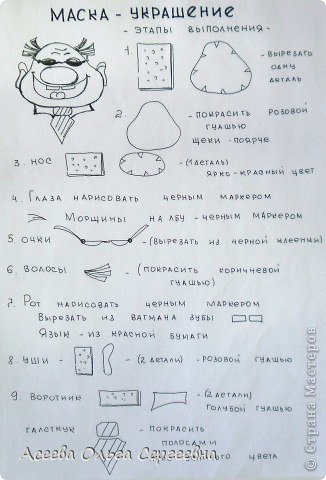 МАСКА - УКРАШЕНИЕ
- ЭТАПЫ ВЫПОЛНЕНИЯ -
1.
- ВЫРЕЗАТЬ
ОДНУ
ДЕТАЛЬ
2.
- ПОКРАСИТЬ РОЗОВОЙ
ГУАШЬЮ
ЩЕКИ - ПОЯРЧЕ
3. НОС - (1 ДЕТАЛЬ)
ЯРКО - КРАСНЫЙ ЦВЕТ
4. ГЛАЗА НАРИСОВАТЬ ЧЕРНЫМ МАРКЕРОМ
МОРЩИНЫ НА ЛБУ - ЧЕРНЫМ МАРКЕРОМ
5. ОЧКИ - (ВЫРЕЗАТЬ ИЗ ЧЕРНОЙ КЛЕЕНКИ)
6. ВОЛОСЫ - (ПОКРАСИТЬ КОРИЧНЕВОЙ
ГУАШЬЮ)
7. РОТ НАРИСОВАТЬ ЧЕРНЫМ МАРКЕРОМ
ВЫРЕЗАТЬ ИЗ ВАТМАНА ЗУБЫ
ЯЗЫК - ИЗ КРАСНОЙ БУМАГИ
8. УШИ - (2 ДЕТАЛИ) - РОЗОВОЙ ГУАШЬЮ
9. ВОРОТНИК - (2 ДЕТАЛИ)
ГОЛУБОЙ ГУАШЬЮ
ГАЛСТУК - ПОКРАСИТЬ
ПОЛОСАМИ
ЦВЕТА
Асеева Ольга Сергеевна
© Страна Мастеров